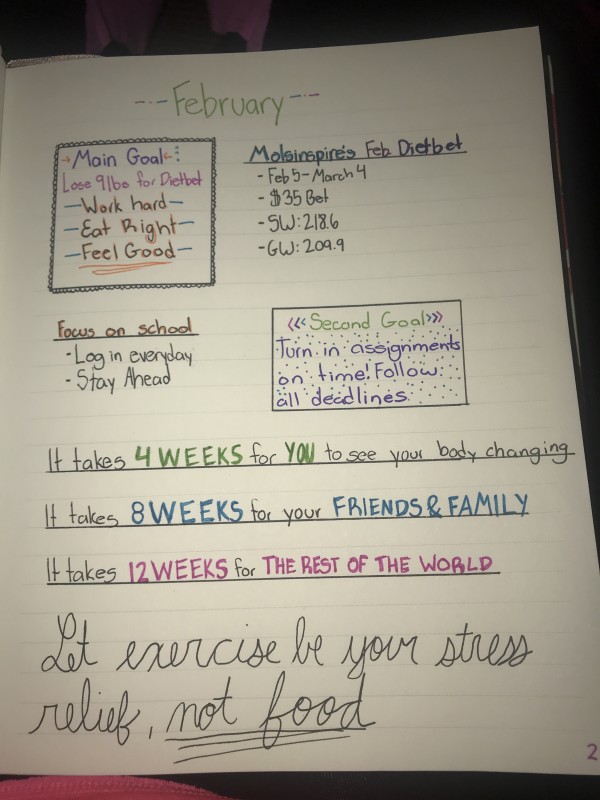 --- February ---
Main Goal:
Lose 9lbs for Dietbet
- Work hard -
- Eat Right -
- Feel Good -
Molsinspire's Feb Dietbet
- Feb 5 - March 4
- $35 Bet
- SW: 218.6
- GW: 209.9
Focus on school
- Log in everyday
- Stay Ahead
<<< Second Goal >>>
Turn in assignments
on time! Follow
all deadlines.
It takes 4 WEEKS for YOU to see your body changing
It takes 8 WEEKS for your FRIENDS & FAMILY
It takes 12 WEEKS for THE REST OF THE WORLD
Let exercise be your stress
relief, not food
2